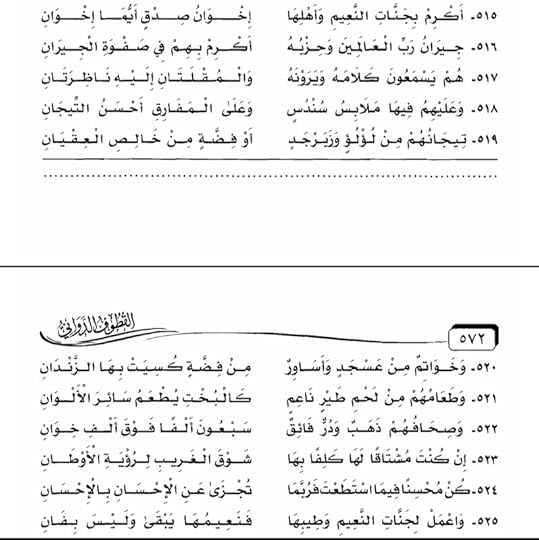 ٥١٥- أَكْرِمْ بِجَنَّاتِ النَّعِيمِ وَأَهْلِهَا إِخْوَانُ صِدْقٍ أَيُّمَا إِخْوَانِ
٥١٦- جِيرَانُ رَبِّ الْعَالَمِينَ وَحِزْبُهُ أَكْرِمْ بِهِمْ فِي صَفْوَةِ الْجِيرَانِ
٥١٧- هُمْ يَسْمَعُونَ كَلَامَهُ وَيَرَوْنَهُ وَالْمُقْلَتَانِ إِلَيْهِ نَاظِرَتَانِ
٥١٨- وَعَلَيْهِمُ فِيهَا مَلَابِسُ سُنْدُسٍ وَعَلَى الْمَفَارِقِ أَحْسَنُ التِّيجَانِ
٥١٩- تِيجَانُهُمْ مِنْ لُؤْلُؤٍ وَزَبَرْجَدٍ أَوْ فِضَّةٍ مِنْ خَالِصِ الْعِقْيَانِ
القطوف الدواني
٥٧٢
٥٢٠- وَخَوَاتِمٌ مِنْ عَسْجَدٍ وَأَسَاوِرٌ مِنْ فِضَّةٍ كُسِيَتْ بِهَا الزَّنْدَانِ
٥٢١- وَطَعَامُهُمْ مِنْ لَحْمِ طَيْرٍ نَاعِمٍ كَالْبُخْتِ يُطْعَمُ سَائِرَ الْأَلْوَانِ
٥٢٢- وَصِحَافُهُمْ ذَهَبٌ وَدُرٌّ فَائِقٌ سَبْعُونَ أَلْفًا فَوْقَ أَلْفِ خِوَانِ
٥٢٣- إِنْ كُنْتَ مُشْتَاقًا لَهَا كَلِفًا بِهَا شَوْقَ الْغَرِيبِ لِرُؤْيَةِ الْأَوْطَانِ
٥٢٤- كُنْ مُحْسِنًا فِيمَا اسْتَطَعْتَ فَرُبَّمَا تُجْزَى عَنِ الْإِحْسَانِ بِالْإِحْسَانِ
٥٢٥- وَاعْمَلْ لِجَنَّاتِ النَّعِيمِ وَطِيبِهَا فَنَعِيمُهَا يَبْقَى وَلَيْسَ بِفَانِ